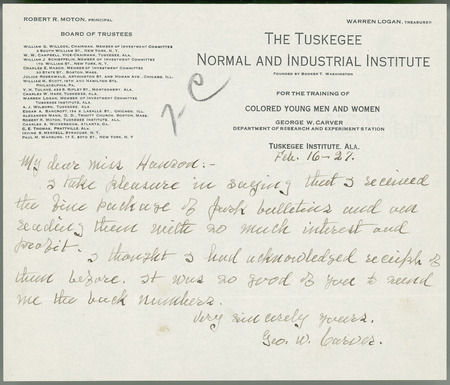 ROBERT R. MOTON, PRINCIPAL
WARREN LOGAN, TREASURER
BOARD OF TRUSTEES
WILLIAM G. WILLCOX, CHAIRMAN, MEMBER OF INVESTMENT COMMITTEE
3 SOUTH WILLIAM ST., NEW YORK, N. Y.
W. W. CAMPBELL, VICE-CHAIRMAN, TUSKEGEE, ALA.
WILLIAM J. SCHIEFFELIN, MEMBER OF INVESTMENT COMMITTEE
170 WILLIAM ST., NEW YORK, N. Y.
CHARLES E. MASON, MEMBER OF INVESTMENT COMMITTEE
30 STATE ST., BOSTON, MASS.
JULIUS ROSENWALD, ARTHINGTON ST. AND HOMAN AVE., CHICAGO, ILL.
WILLIAM M. SCOTT, 13TH AND HAMILTON STS.
PHILADELPHIA, PA.
V. H. TULANE, 430 S. RIPLEY ST., MONTGOMERY, ALA.
CHARLES W. HARE, TUSKEGEE, ALA.
WARREN LOGAN, MEMBER OF INVESTMENT COMMITTEE
TUSKEGEE INSTITUTE, ALA.
A. J. WILBORN, TUSKEGEE, ALA.
EDGAR A. BANCROFT, 134 S. LASALLE ST., CHICAGO, ILL.
ALEXANDER MANN, D. D., TRINITY CHURCH, BOSTON, MASS.
ROBERT R. MOTON, TUSKEGEE INSTITUTE, ALA.
CHARLES A. WICKERSHAM, ATLANTA, GA.
G. E. THOMAS, PRATTVILLE, ALA.
IRVING S. MERRELL, SYRACUSE, N. Y.
PAUL M. WARBURG, 17 E. 80TH ST., NEW YORK, N. Y.
THE TUSKEGEE
NORMAL AND INDUSTRIAL INSTITUTE
FOUNDED BY BOOKER T. WASHINGTON
FOR THE TRAINING OF
COLORED YOUNG MEN AND WOMEN
GEORGE W. CARVER
DEPARTMENT OF RESEARCH AND EXPERIMENT STATION
TUSKEGEE INSTITUTE, ALA.
Feb. 16-27.
My dear Miss Hanson:-
I take pleasure in saying that I received
the fine package of Park bulletins and am
reading them with so much interest and
profit. I thought I had acknowledged receipt of
them before. It was so good of you to send
me the back numbers.
Very sincerely yours,
Geo. W. Carver.